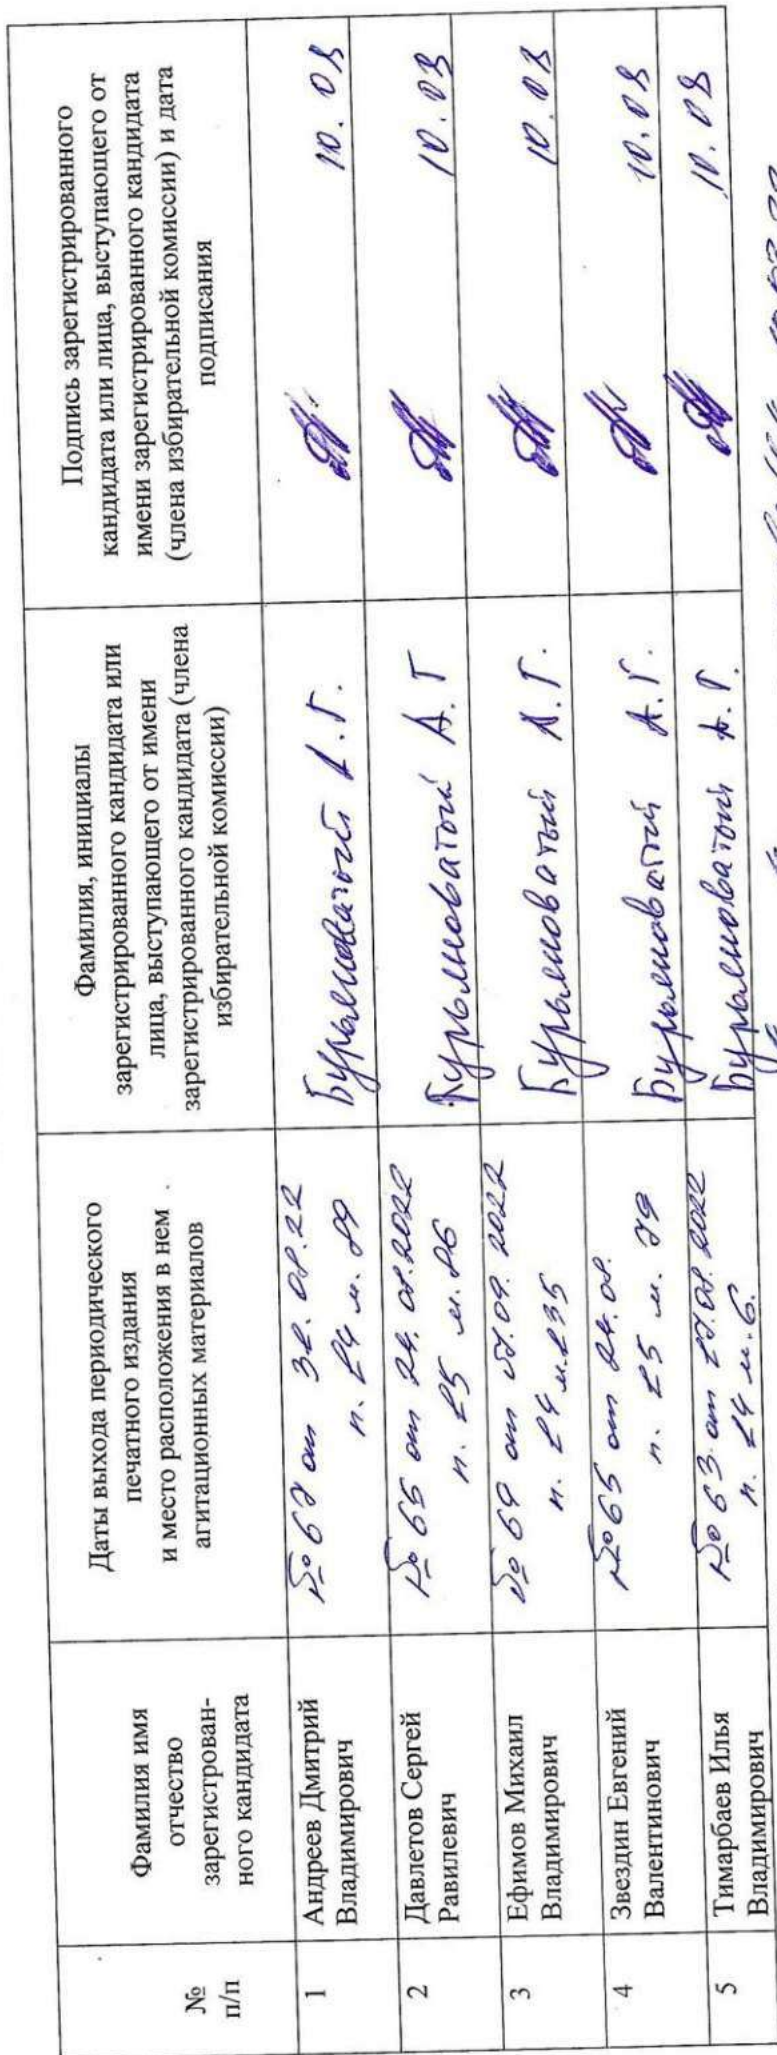 №
п/п
Фамилия имя
отчество
зарегистрирован-
ного кандидата
Даты выхода периодического
печатного издания
и место расположения в нем
агитационных материалов
Фамилия, инициалы
зарегистрированного кандидата или
лица, выступающего от имени
зарегистрированного кандидата (члена
избирательной комиссии)
Подпись зарегистрированного
кандидата или лица, выступающего от
имени зарегистрированного кандидата
(члена избирательной комиссии) и дата
подписания
1
Андреев Дмитрий
Владимирович
№ 67 от 31.08.22
п. 24 м. 29
Бурылноватый А.Г.
10.08
2
Давлетов Сергей
Равилевич
№ 65 от 24.08.2022
п. 25 м. 26
Бурылноватый А.Г
10.08
3
Ефимов Михаил
Владимирович
№ 69 от 07.09.2022
п. 24 м. 235
Бурылноватый А.Г.
10.08
4
Звездин Евгений
Валентинович
№ 65 от 24.08.
п. 25 м. 79
Бурылноватый А.Г.
10.08
5
Тимарбаев Илья
Владимирович
№ 63 от 17.08.2022
п. 24 м. 6.
Бурылноватый А.Г.
10.08